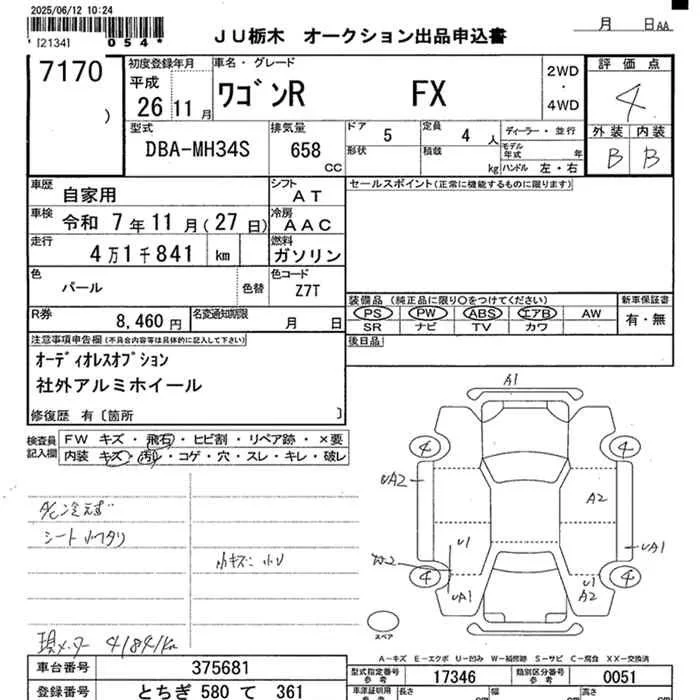 2025/06/12 10:24
054*
JU栃木 オークション出品申込書
月 日 AA
7170
初度登録年月
平成
26 11月
車名・グレード
ワゴンR FX
2WD
・
4WD
評価点
4
外装 内装
B B
型式
DBA-MH34S
排気量
658
CC
ドア 5
定員 4 人
形状
積載 kg
ディーラー・並行
モデル年式 年
ハンドル 左・右
車歴 自家用
シフト AT
セールスポイント(正常に機能するものに限ります)
車検 令和 7年11月(27日)
冷房 AAC
走行 4万1千841 km
燃料 ガソリン
色 パール
色替
色コード Z7T
R券 8,460円
名変通知期限 月 日
装備品 (純正品に限り○をつけてください)
PS PW ABS エアB AW
SR ナビ TV カワ
新車保証書
有・無
後日品
注意事項申告欄 (不具合内容等は具体的に記入して下さい)
オーディオレスオプション
社外アルミホイール
修復歴 有〔箇所 〕
検査員記入欄
FW キズ・飛石・ヒビ割・リペア跡・×要
内装 キズ・汚レ・コゲ・穴・スレ・キレ・破レ
A/C冷えず
シート小ヘタリ
小キズ 小U
現メーター 41841km
A1
4 4
UA2
A2
U1
UA1
4 4
UA1
U1
A2
スペア
A-キズ E-エクボ U-凹み W-補修跡 S-サビ C-腐食 XX-交換済
車台番号 375681
型式指定番号参考 17346
類別区分番号参考 0051
登録番号 とちぎ 580 て 361
車庫証明用参考
長さ cm
幅 cm
高さ cm